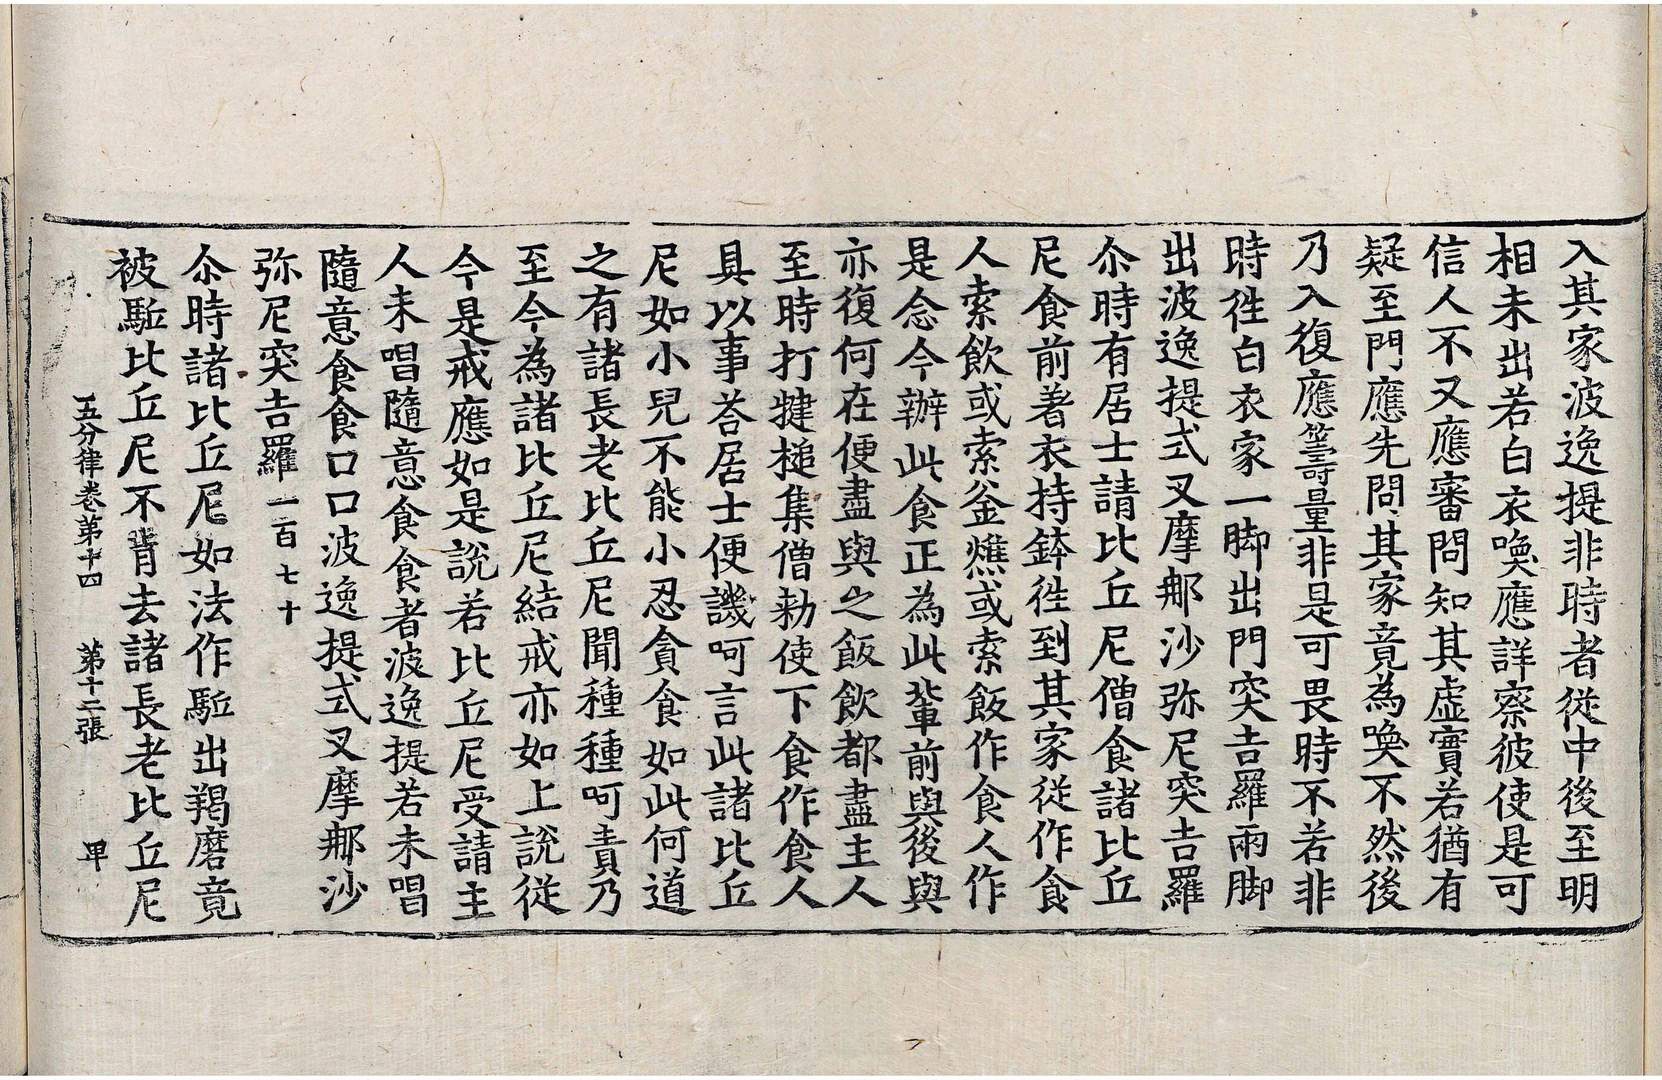 入其家波逸提非時者從中後至明
相未出若白衣喚應詳察彼使是可
信人不又應審問知其虛實若猶有
疑至門應先問其家竟為喚不然後
乃入復應籌量非是可畏時不若非
時徃白衣家一脚出門突吉羅兩脚
出波逸提式叉摩郍沙弥尼突吉羅
尒時有居士請比丘尼僧食諸比丘
尼食前著衣持鉢徃到其家從作食
人索飲或索釜燋或索飯作食人作
是念今辦此食正為此輩前與後與
亦復何在便盡與之飯飲都盡主人
至時打揵槌集僧勑使下食作食人
具以事荅居士便譏呵言此諸比丘
尼如小兒不能小忍貪食如此何道
之有諸長老比丘尼聞種種呵責乃
至今為諸比丘尼結戒亦如上說從
今是戒應如是說若比丘尼受請主
人未唱隨意食食者波逸提若未唱
隨意食食口口波逸提式叉摩郍沙
弥尼突吉羅一百七十
尒時諸比丘尼如法作駈出羯磨竟
被駈比丘尼不肯去諸長老比丘尼
五分律卷第十四 第十二張 甲